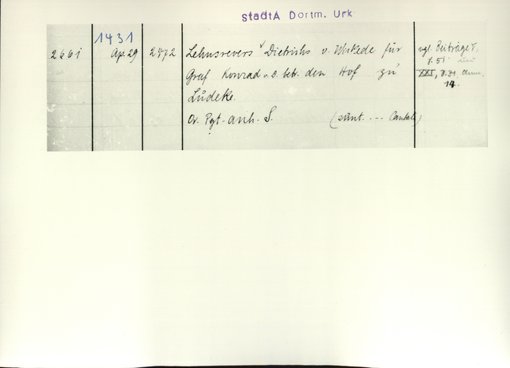 StadtA Dortm. Urk
1431
2661 Apr. 29 2872 Lehnsrevers Dietrichs v. Wickede für
Graf Konrad v. D. betr. den Hof zu
Lüdeke.
Or. Pgt. anh. S. (sünt. ... Cantate)
vgl. Beiträge I.
S. 51
XXI, S. 71 Anm.
14.